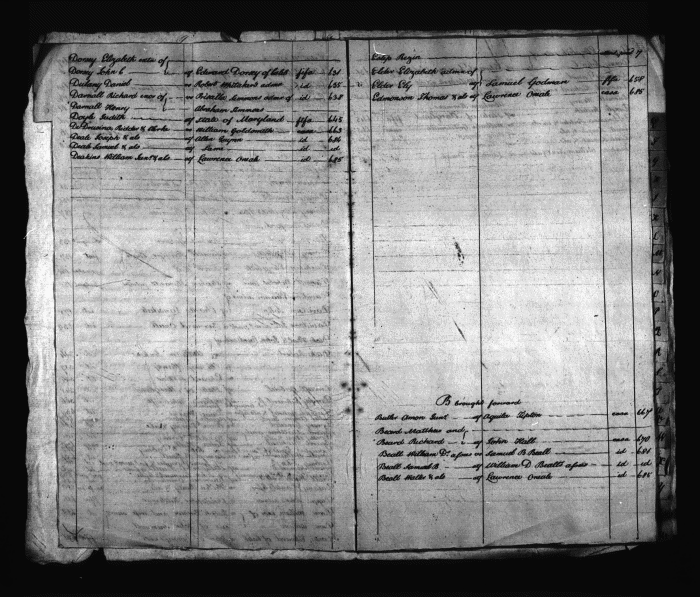 Dorsey Elizabeth exrx of
Dorsey John C — vs Edward Dorsey of Caleb fifa 631
Dulany Daniel vs Robert Whitakers admr id 635
Darnall Richard exor of id 638
Darnall Henry Abraham Simmons
Doyle Judith of State of Maryland fifa 645
& Clerke vs William Goldsmith case 663
Deale Joseph & als of Allen Quynn id 684
Deale Samuel & als of Same id id
Deakins William Junr & als of Lawrence Oneale id 685
Estep Rezin
Elder Elizabeth admx of
Elder Ely of Samuel Godman fifa 658
Edmonson Thomas & als of Lawrence Oneale case 685
B brought forward
Butler Amon Junr of Aquila Tipton case 667
Beard Matthew and
Beard Richard of John Hall case 670
Beall William D. use vs Samuel B Beall id 684
Beall Samuel B of William D Bealls use id id
Beall Walter & als of Lawrence Oneale id 685